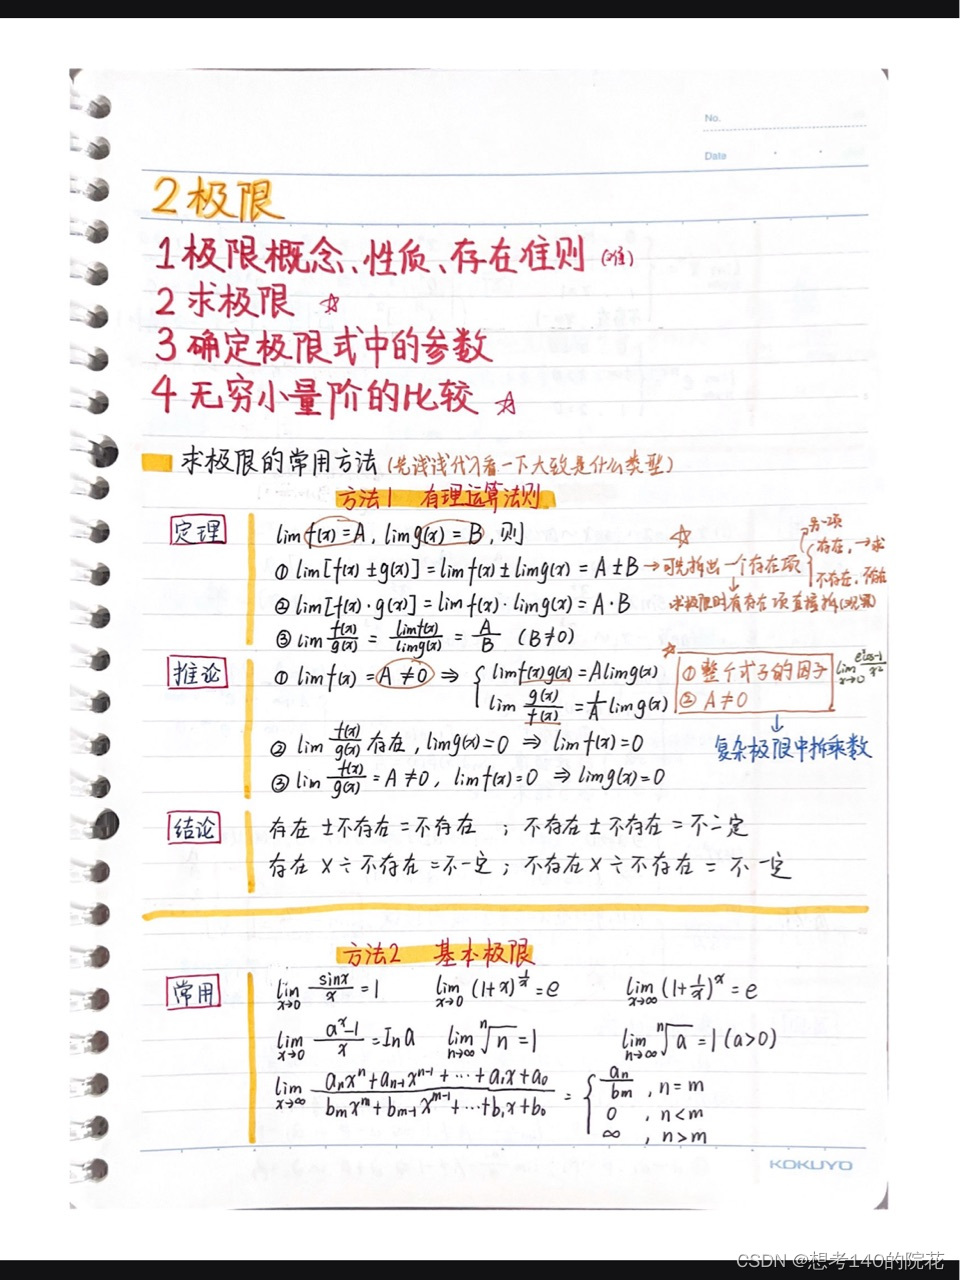 No.
Date
2 极限
1 极限概念、性质、存在准则 (难)
2 求极限 ☆
3 确定极限式中的参数
4 无穷小量阶的比较 ☆
求极限的常用方法 (先浅浅代入看一下大致是什么类型)
方法1 有理运算法则
定理
lim f(x) = A, lim g(x) = B, 则
① lim[f(x) ± g(x)] = lim f(x) ± lim g(x) = A ± B → 可先拆出一个存在项
☆
另一项
存在, → 求
不存在,
② lim[f(x)·g(x)] = lim f(x)·lim g(x) = A·B
求极限时有存在项直接拆
③ lim f(x)/g(x) = lim f(x)/lim g(x) = A/B (B≠0)
推论
① lim f(x) = A ≠ 0 ⇒ { lim f(x)g(x) = A lim g(x)
lim g(x)/f(x) = 1/A lim g(x)
☆
① 整个式子的因子
② A ≠ 0
lim x→0
↓
复杂极限中拆乘数
② lim f(x)/g(x) 存在, lim g(x) = 0 ⇒ lim f(x) = 0
③ lim f(x)/g(x) = A ≠ 0, lim f(x) = 0 ⇒ lim g(x) = 0
结论
存在 ± 不存在 = 不存在 ; 不存在 ± 不存在 = 不一定
存在 × ÷ 不存在 = 不一定 ; 不存在 × ÷ 不存在 = 不一定
方法2 基本极限
常用
lim x→0 sinx/x = 1 lim x→0 (1+x)^(1/x) = e lim x→∞ (1+1/x)^x = e
lim x→0 (a^x-1)/x = lna lim n→∞ ⁿ√n = 1 lim n→∞ ⁿ√a = 1 (a>0)
lim x→∞ (aₙxⁿ+aₙ₋₁xⁿ⁻¹+…+a₁x+a₀)/(bₘxᵐ+bₘ₋₁xᵐ⁻¹+…+b₁x+b₀) = { aₙ/bₘ , n=m
0 , n<m
∞ , n>m
KOKUYO
CSDN @想考140的院花